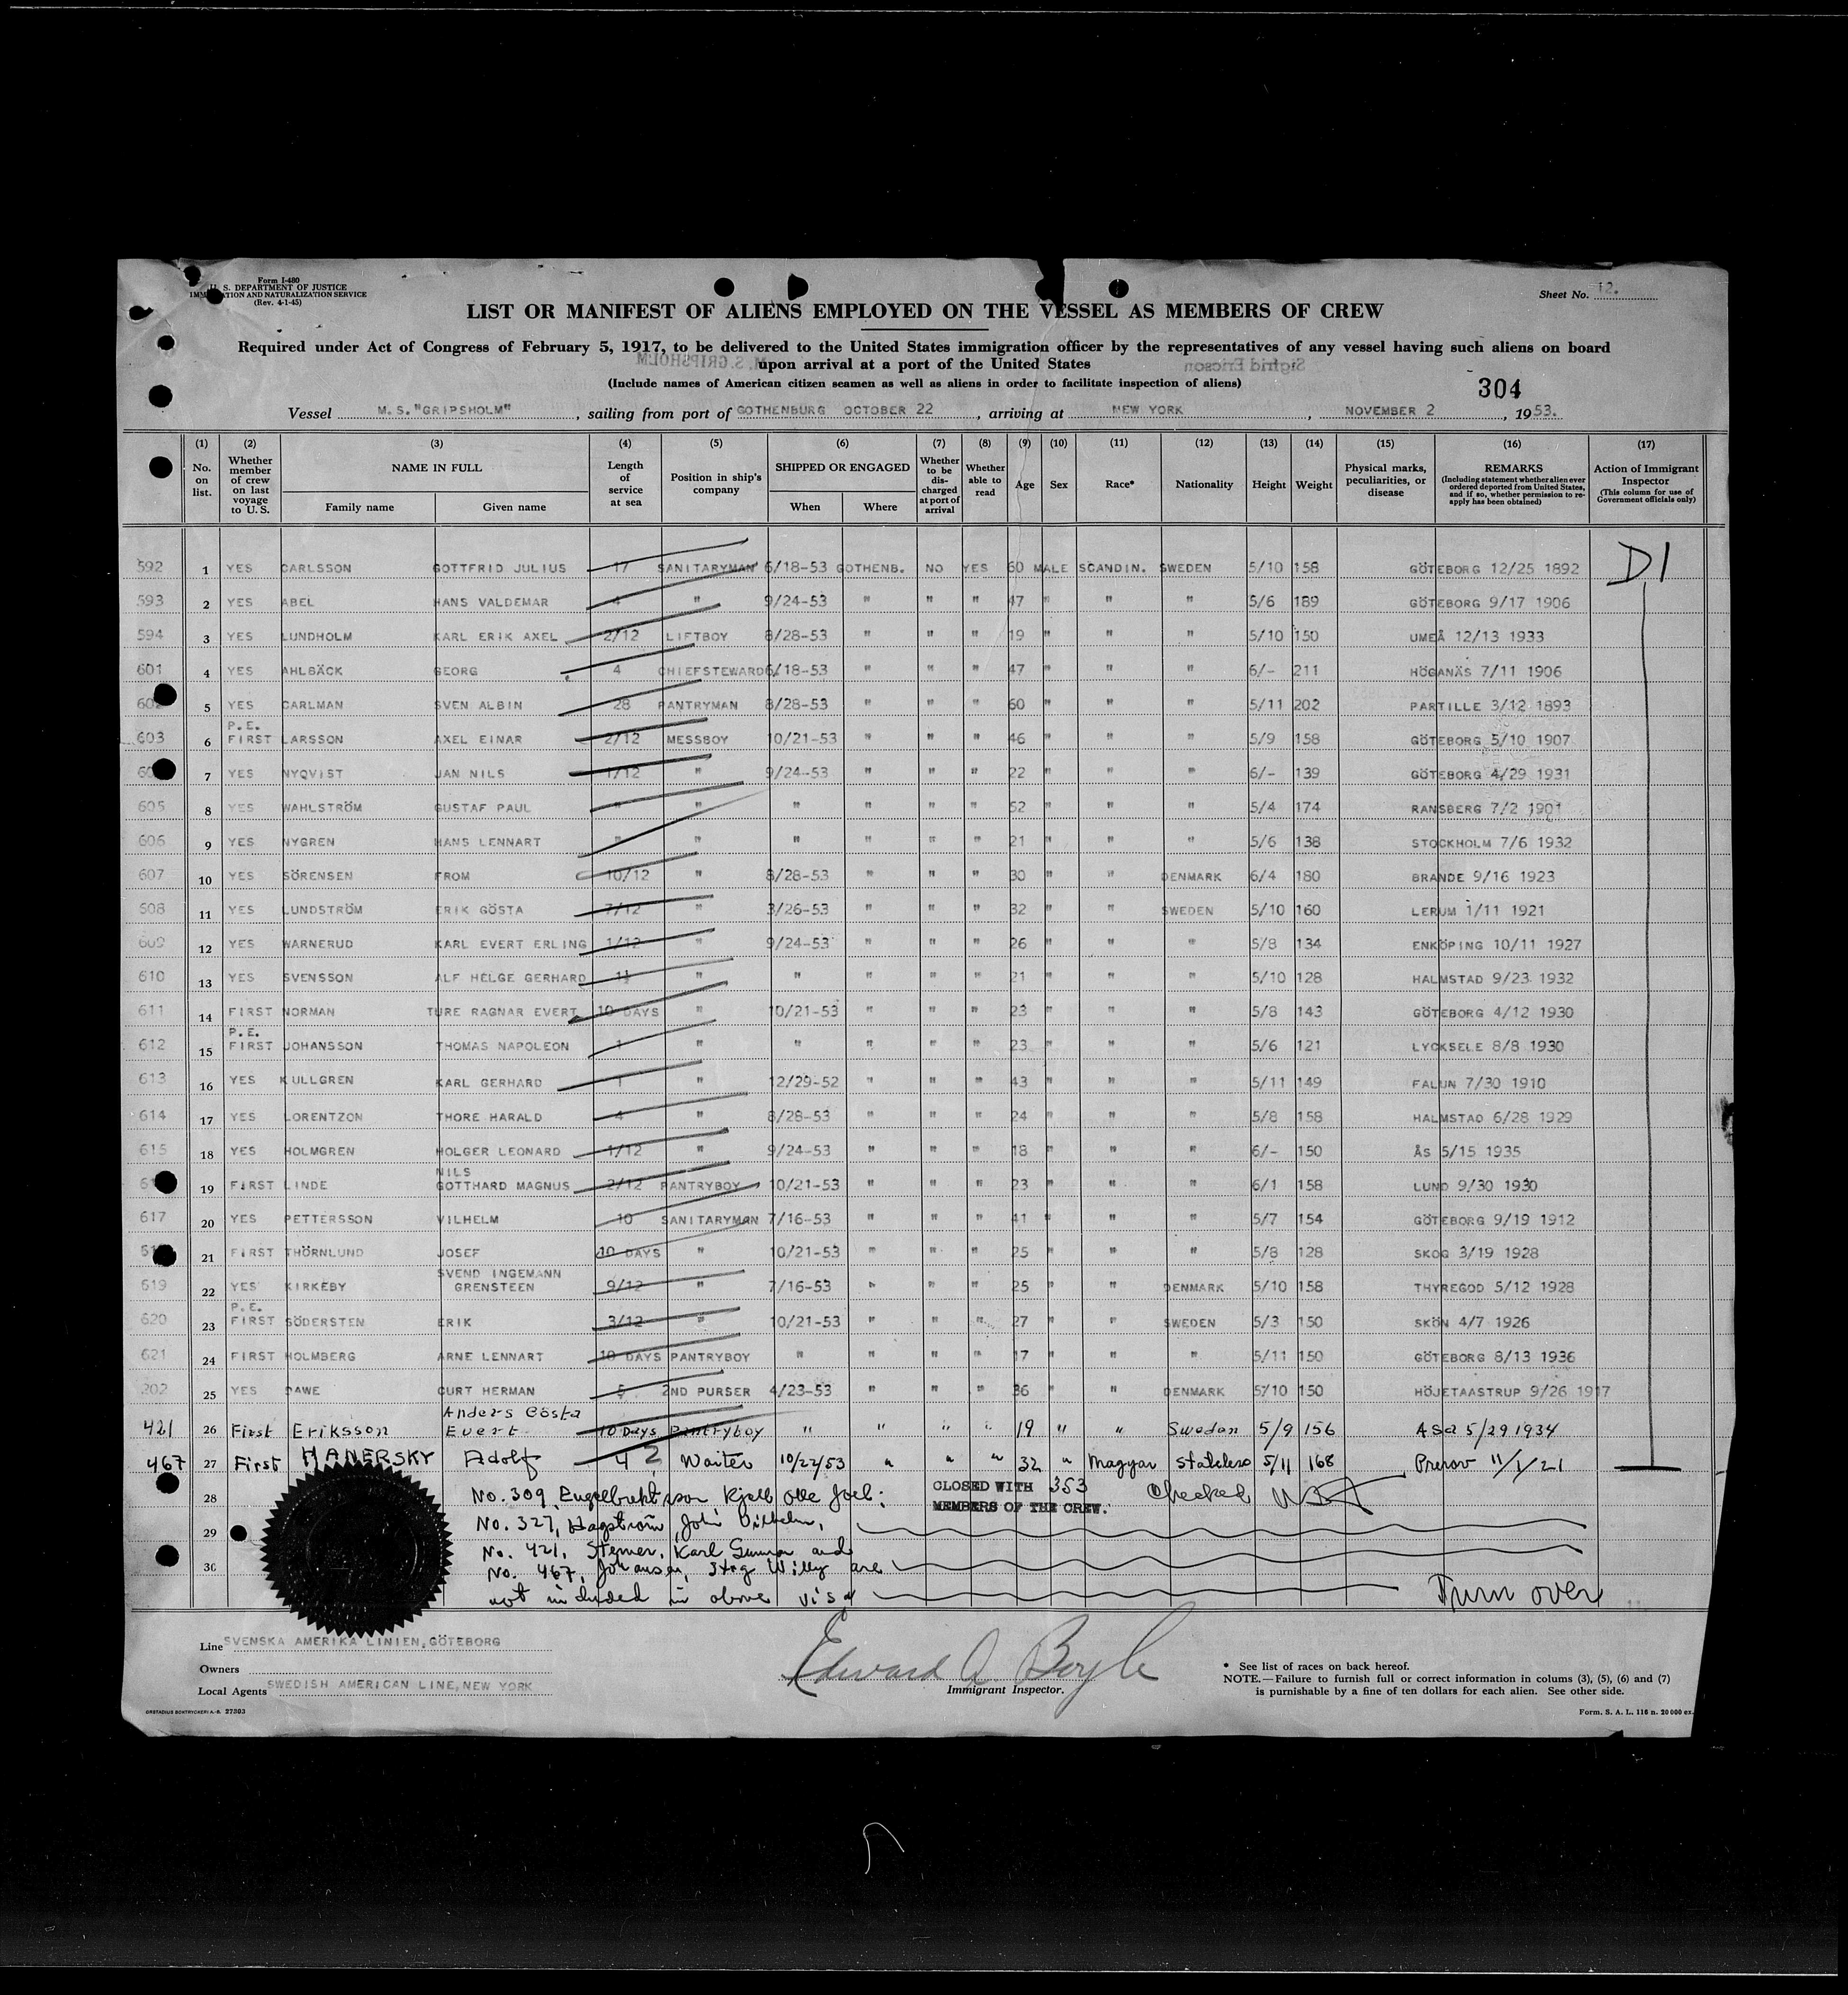 Form I-480
U. S. DEPARTMENT OF JUSTICE
IMMIGRATION AND NATURALIZATION SERVICE
(Rev. 4-1-45)
Sheet No. 12.
LIST OR MANIFEST OF ALIENS EMPLOYED ON THE VESSEL AS MEMBERS OF CREW
Required under Act of Congress of February 5, 1917, to be delivered to the United States immigration officer by the representatives of any vessel having such aliens on board
upon arrival at a port of the United States
M. S. GRIPSHOLM
Sigfrid Ericson
(Include names of American citizen seamen as well as aliens in order to facilitate inspection of aliens)
304
Vessel M.S."GRIPSHOLM", sailing from port of GOTHENBURG OCTOBER 22, arriving at NEW YORK, NOVEMBER 2, 1953.
(1) No. on list.
(2) Whether member of crew on last voyage to U. S.
(3) NAME IN FULL Family name Given name
(4) Length of service at sea
(5) Position in ship's company
(6) SHIPPED OR ENGAGED When Where
(7) Whether to be discharged at port of arrival
(8) Whether able to read
(9) Age
(10) Sex
(11) Race*
(12) Nationality
(13) Height
(14) Weight
(15) Physical marks, peculiarities, or disease
(16) REMARKS (Including statement whether alien ever ordered deported from United States, and if so, whether permission to reapply has been obtained)
(17) Action of Immigrant Inspector (This column for use of Government officials only)
592 1 YES CARLSSON GOTTFRID JULIUS 17 SANITARYMAN 6/18-53 GOTHENB. NO YES 60 MALE SCANDIN. SWEDEN 5/10 158 GÖTEBORG 12/25 1892 D1
593 2 YES ABEL HANS VALDEMAR 4 " 9/24-53 " " " 47 " " " 5/6 189 GÖTEBORG 9/17 1906
594 3 YES LUNDHOLM KARL ERIK AXEL 2/12 LIFTBOY 8/28-53 " " " 19 " " " 5/10 150 UMEÅ 12/13 1933
601 4 YES AHLBÄCK GEORG 4 CHIEFSTEWARD 6/18-53 " " " 47 " " " 6/- 211 HÖGANÄS 7/11 1906
602 5 YES CARLMAN SVEN ALBIN 28 PANTRYMAN 8/28-53 " " " 60 " " " 5/11 202 PARTILLE 3/12 1893
P.E.
603 6 FIRST LARSSON AXEL EINAR 2/12 MESSBOY 10/21-53 " " " 46 " " " 5/9 158 GÖTEBORG 5/10 1907
7 YES NYQVIST JAN NILS 1/12 " 9/24-53 " " " 22 " " " 6/- 139 GÖTEBORG 4/29 1931
605 8 YES WAHLSTRÖM GUSTAF PAUL " " " " " " 52 " " " 5/4 174 RANSBERG 7/2 1901
606 9 YES NYGREN HANS LENNART " " " " " " 21 " " " 5/6 138 STOCKHOLM 7/6 1932
607 10 YES SÖRENSEN FROM 10/12 " 8/28-53 " " " 30 " " DENMARK 6/4 180 BRANDE 9/16 1923
608 11 YES LUNDSTRÖM ERIK GÖSTA 7/12 " 3/26-53 " " " 32 " " SWEDEN 5/10 160 LERUM 1/11 1921
609 12 YES WARNERUD KARL EVERT ERLING 1/12 " 9/24-53 " " " 26 " " " 5/8 134 ENKÖPING 10/11 1927
610 13 YES SVENSSON ALF HELGE GERHARD 1½ " " " " " 21 " " " 5/10 128 HALMSTAD 9/23 1932
611 14 FIRST NORMAN TURE RAGNAR EVERT 10 DAYS " 10/21-53 " " " 23 " " " 5/8 143 GÖTEBORG 4/12 1930
P.E.
612 15 FIRST JOHANSSON THOMAS NAPOLEON 1 " " " " " 23 " " " 5/6 121 LYCKSELE 8/8 1930
613 16 YES KULLGREN KARL GERHARD 1 " 12/29-52 " " " 43 " " " 5/11 149 FALUN 7/30 1910
614 17 YES LORENTZON THORE HARALD 4 " 8/28-53 " " " 24 " " " 5/8 158 HALMSTAD 6/28 1929
615 18 YES HOLMGREN HOLGER LEONARD 1/12 " 9/24-53 " " " 18 " " " 6/- 150 ÅS 5/15 1935
NILS
19 FIRST LINDE GOTTHARD MAGNUS 2/12 PANTRYBOY 10/21-53 " " " 23 " " " 6/1 158 LUND 9/30 1930
617 20 YES PETTERSSON VILHELM 10 SANITARYMAN 7/16-53 " " " 41 " " " 5/7 154 GÖTEBORG 9/19 1912
21 FIRST THÖRNLUND JOSEF 10 DAYS " 10/21-53 " " " 25 " " " 5/8 128 SKOG 3/19 1928
SVEND INGEMANN
619 22 YES KIRKEBY GRENSTEEN 9/12 " 7/16-53 " " " 25 " " DENMARK 5/10 158 THYREGOD 5/12 1928
P.E.
620 23 FIRST SÖDERSTEN ERIK 3/12 " 10/21-53 " " " 27 " " SWEDEN 5/3 150 SKÖN 4/7 1926
621 24 FIRST HOLMBERG ARNE LENNART 10 DAYS PANTRYBOY " " " " 17 " " " 5/11 150 GÖTEBORG 8/13 1936
202 25 YES DAWE CURT HERMAN 5 2ND PURSER 4/23-53 " " " 36 " " DENMARK 5/10 150 HÖJETAASTRUP 9/26 1917
Anders Gösta
421 26 First Eriksson Evert 10 Days Pantryboy " " " " 19 " " Sweden 5/9 156 Asa 5/29 1934
467 27 First HANERSKY Adolf 4 2 Waiter 10/22/53 " " " 32 " Magyar Stateless 5/11 168 Prerov 11/1/21
28 No. 309, Engelbrektsson Kjell Olle Joel; CLOSED WITH 353 Checked
MEMBERS OF THE CREW.
29 No. 327, Hagström John Vilhelm,
No. 421, Sterner, Karl Gunnar and
30 No. 467, Johansen, Stig Willy are
not included in above visa Turn over
11.
Line SVENSKA AMERIKA LINIEN, GÖTEBORG
Owners
Local Agents SWEDISH AMERICAN LINE, NEW YORK
Edward A Boyle
Immigrant Inspector.
* See list of races on back hereof.
NOTE.—Failure to furnish full or correct information in colums (3), (5), (6) and (7)
is punishable by a fine of ten dollars for each alien. See other side.
ORSTADIUS BOKTRYCKERI A.-B. 27303
Form. S. A. L. 116 n. 20 000 ex.